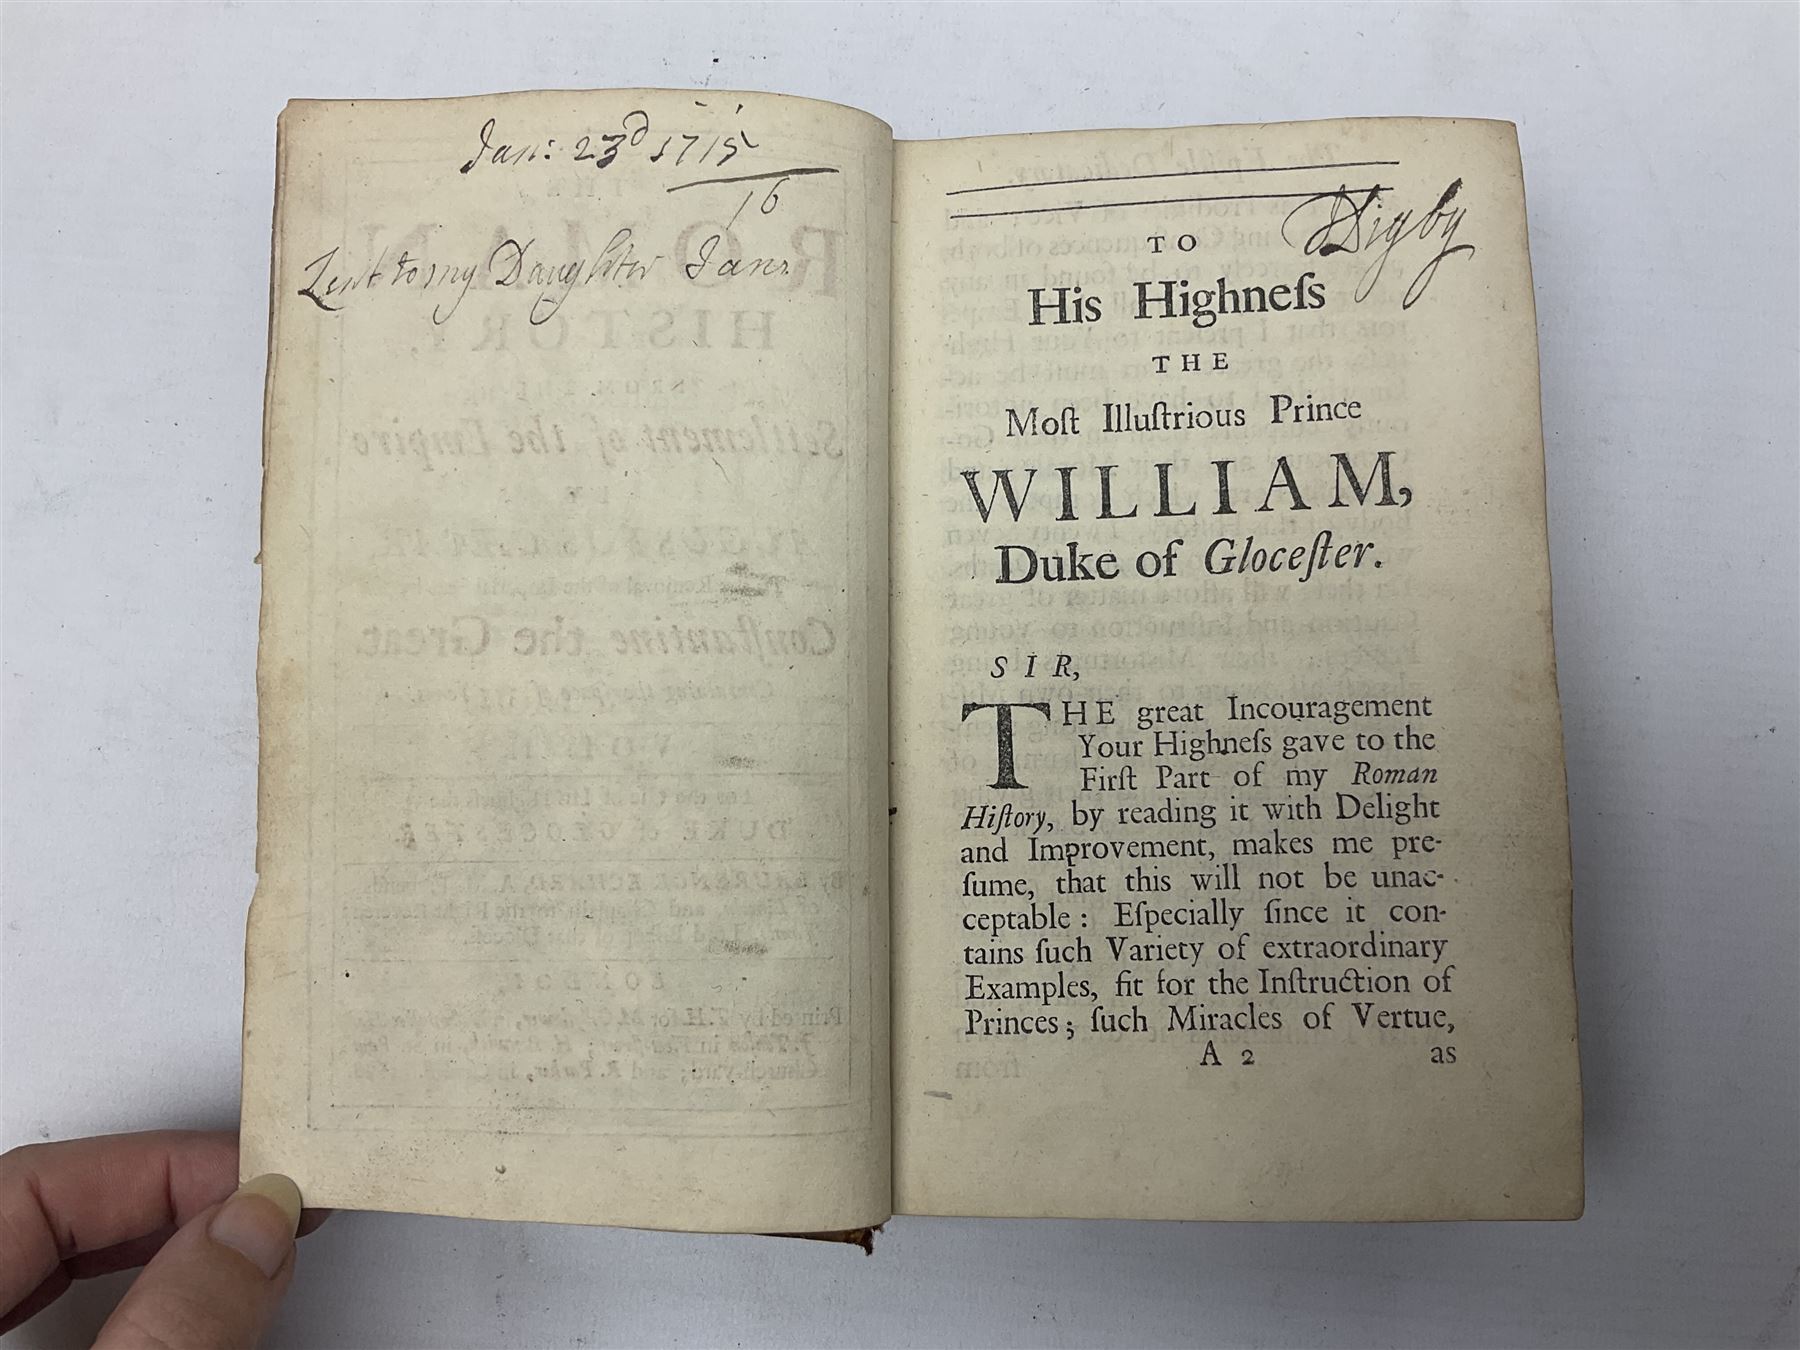 Jan: 23d 1715
16
Lent to my Daughter Jane
Digby
TO
His Highneſs
THE
Moſt Illuſtrious Prince
WILLIAM,
Duke of Gloceſter.
SIR,
THE great Incouragement
Your Highneſs gave to the
Firſt Part of my Roman
Hiſtory, by reading it with Delight
and Improvement, makes me pre-
ſume, that this will not be unac-
ceptable: Eſpecially ſince it con-
tains ſuch Variety of extraordinary
Examples, fit for the Inſtruction of
Princes; ſuch Miracles of Vertue,
A 2
as